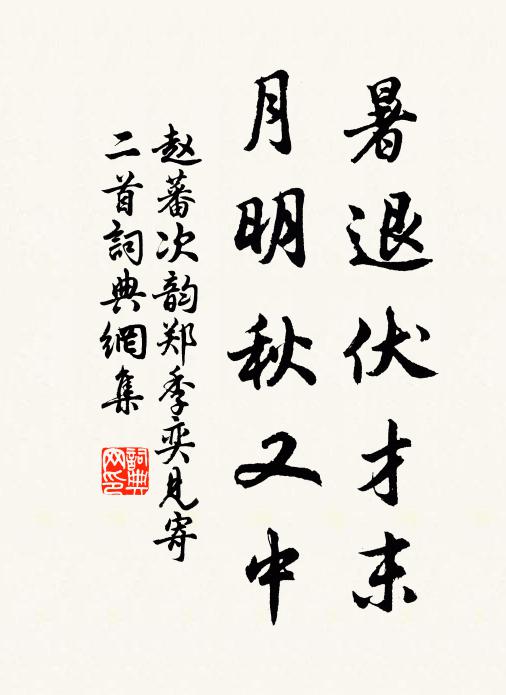 暑退伏才末
月明秋又中
赵蕃次韵郑季奕见寄
二首詞典網集
詞典
网印